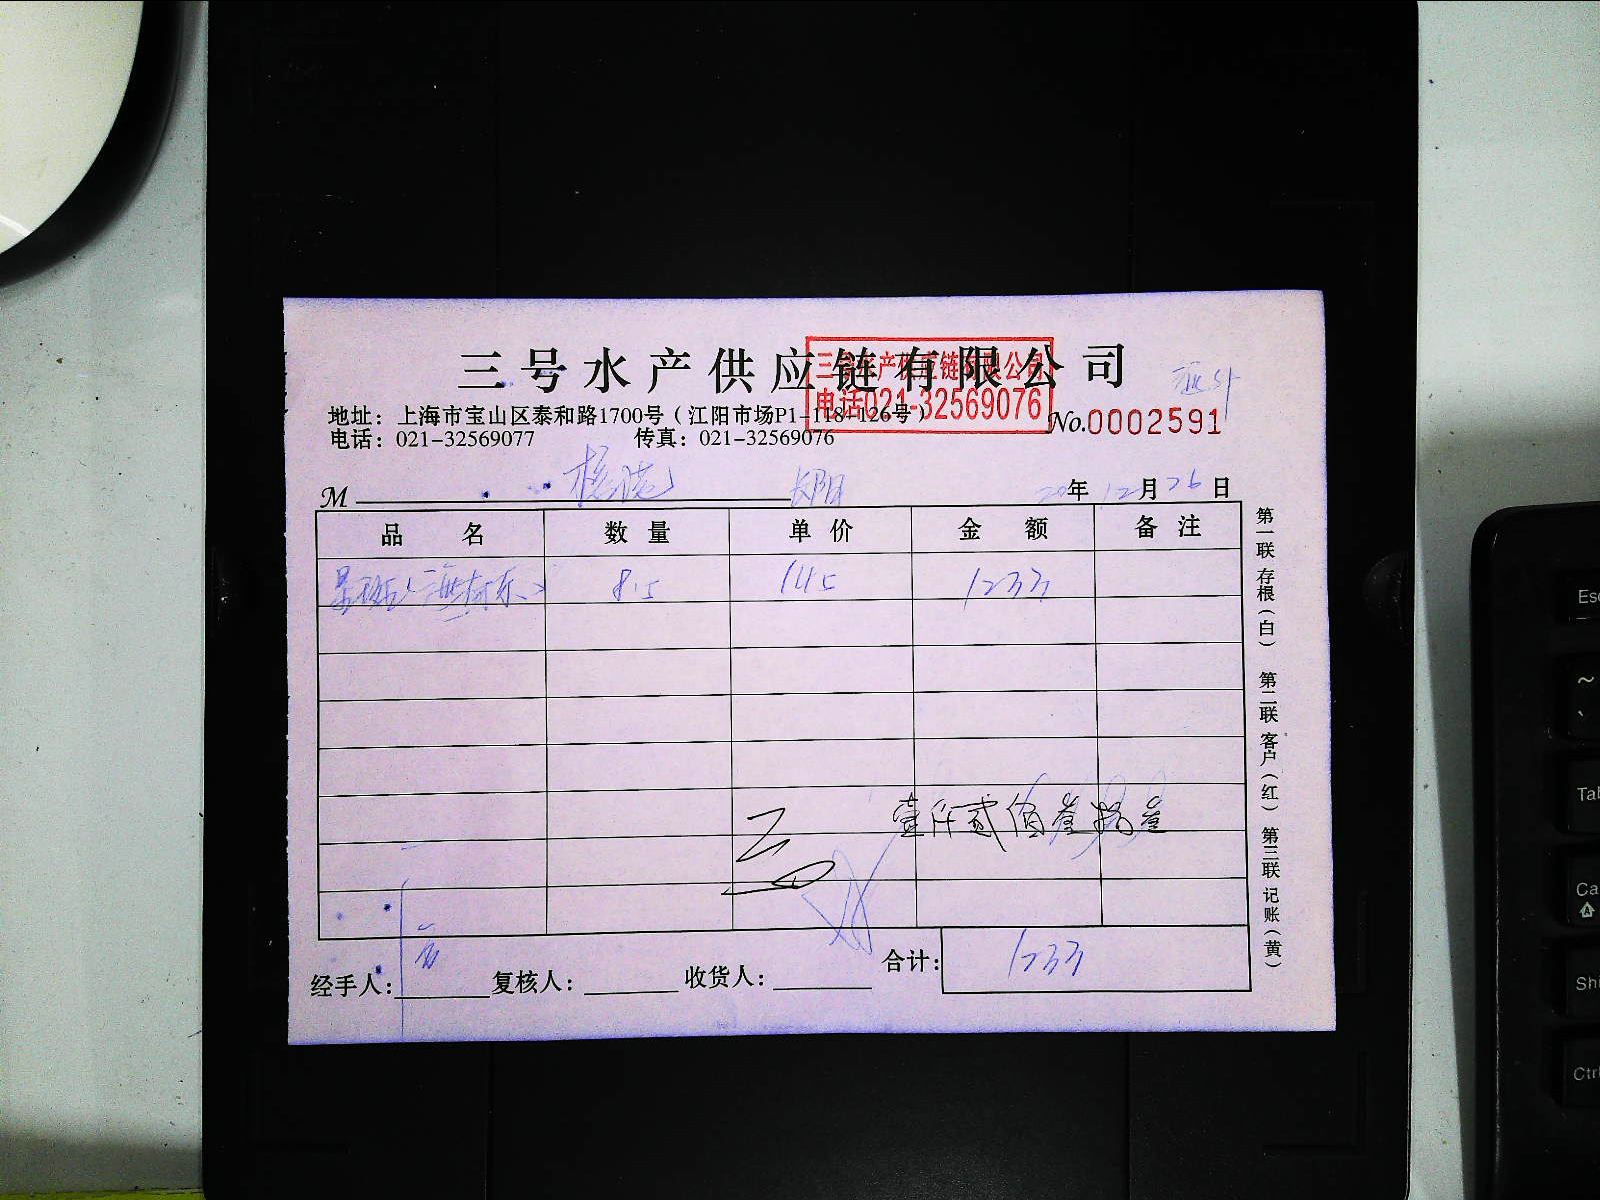 三号水产供应链有限公司
三号水产供应链有限公司
电话021-32569076
地址：上海市宝山区泰和路1700号（江阳市场P1-118-126号）
No.0002591
电话：021-32569077 传真：021-32569076
M 长阳 20年12月26日
品名 数量 单价 金额 备注
8.5 145 1233
壹仟贰佰叁拾叁
合计： 1233
经手人： 复核人： 收货人：
第一联 存根（白） 第二联 客户（红） 第三联 记账（黄）
Esc
~
`
Tab
Ca
Shi
Ctrl